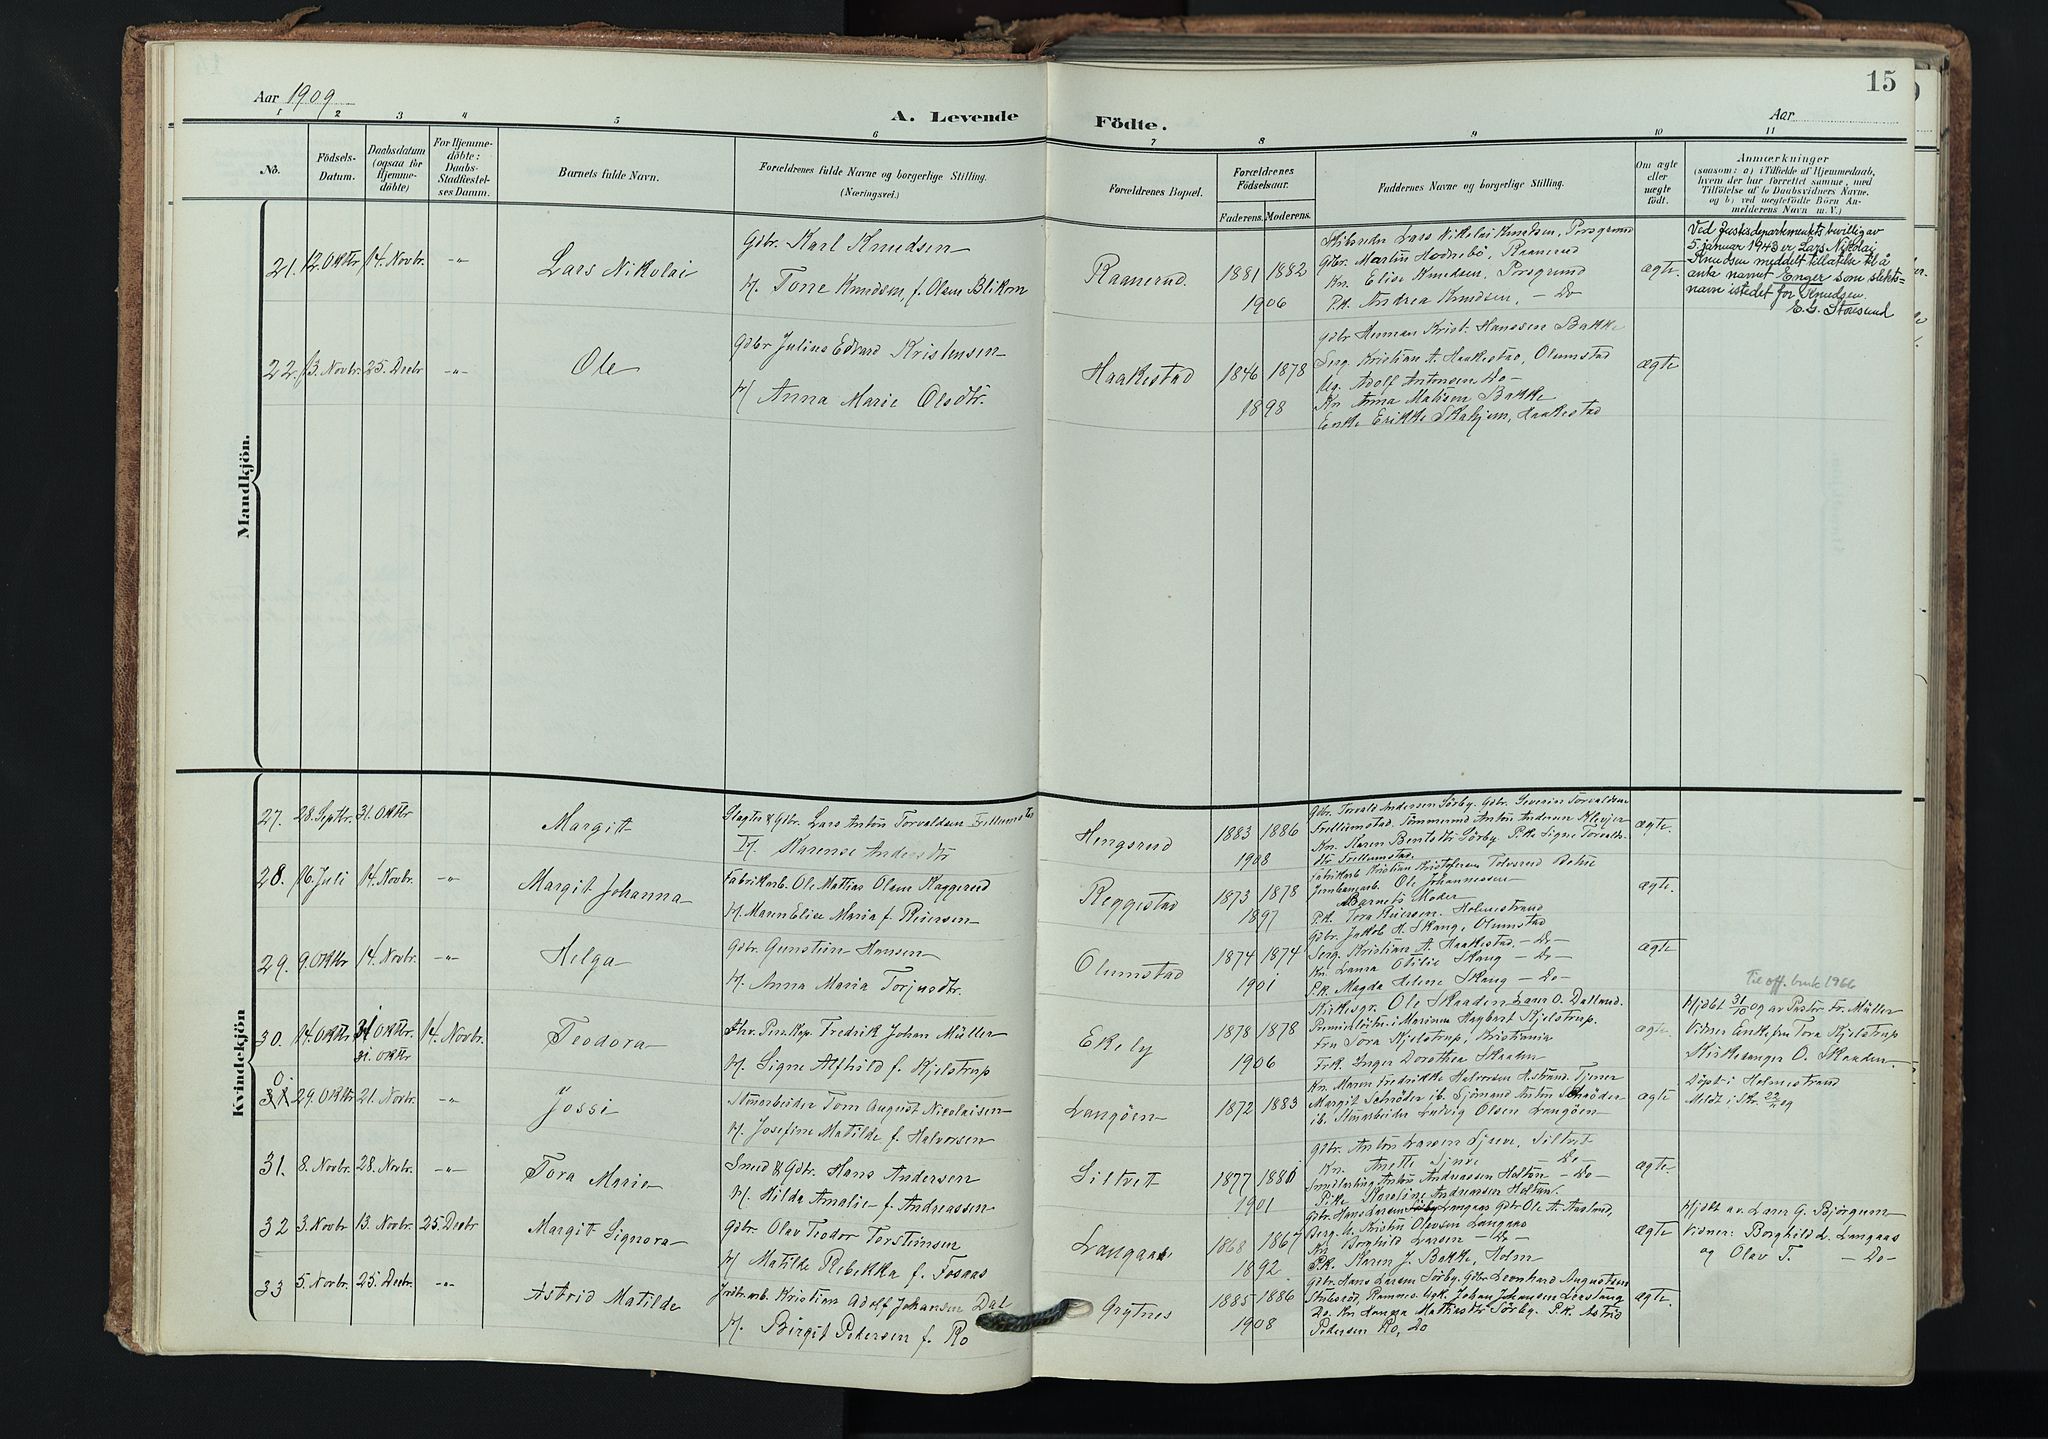 15
Aar 1909
A. Levende
Födte.
Aar
1 2 3 4 5 6 7 8 9 10 11
No.
Födsels-
Datum.
Daabsdatum
(ogsaa for
Hjemme-
döbte)
For Hjemme-
döbte:
Daabs-
Stadfæstel-
ses Datum.
Barnets fulde Navn.
Forældrenes fulde Navne og borgerlige Stilling.
(Næringsvei.)
Forældrenes Bopæl.
Forældrenes
Födselsaar.
Faderens. Moderens.
Faddernes Navne og borgerlige Stilling.
Om ægte
eller
uægte
födt.
Anmærkninger
(saasom: a) i Tilfælde af Hjemmedaab,
hvem der har forrettet samme, med
Tilföielse af to Daabsvidners Navne.
og b) ved uegtefödte Börn An-
melderens Navn m. V.)
Mandkjön.
21. 12. Oktbr 14. Novbr. -"- Lars Nikolai
Gdbr. Karl Knudsen
H. Tone Knudsen, f. Olsen Blikom
Raanerud. 1881 1882
1906
Skibsreder Lars Nikolai Knudsen, Porsgrund
Gdbr. Martin Hodnebö, Raanerud
Kn. Elise Knudsen, Porsgrund
P.k. Andrea Knudsen, - Do
ægte
Ved Justisdepartementets bevilling av
5. januar 1943 er Lars Nikolai
Knudsen meddelt tillatelse til å
anta navnet Enger som slekts=
navn istedet for Knudsen.
E. G. Storesund
22. 13. Novbr. 25. Decbr -"- Ole
Gdbr Julius Edvard Kristensen
H/ Anna Marie Olsdtr.
Haakestad 1846 1878
1898
Gdbr Herman Krist. Hanssen Bakke
Serg. Kristian A. Haakestad, Olumstad
Ug. Adolf Antonsen Do-
Kn Anna Matisen Bakke
Enke Erikke Skahjem, Haakestad
ægte
Kvindekjön
27. 28. Septbr. 31. Oktbr Margitt
Slagter & Gdbr. Lars Anton Torvaldsen Frellumstad
H. Karense Andersdtr
Hengsrud 1883 1886
1908
Gdbr. Torvald Andersen Sörby. Gdbr. Severin Torvaldsen
Frellumstad. Tömmermd Anton Andersen Klevjer
Kn. Karen Bentsdtr Sörby. P.k. Signe Torvalds-
dtr Frellumstad.
ægte
28. 16. Juli 14. Novbr. -"- Margit Johanna
Fabrikarb. Ole Mattias Olsen Raggerud
H. Maren Elise Maria f. Reiersen
Reggestad 1873 1878
1897
Fabrikarb Kristian Kristofersen
Jernbanearb. Ole Johannessen
Barnets Moder
P.k. Tora Reiersen. Holmestrand
ægte
29. 9. Oktbr 14. Novbr. -"- Helga
Gdbr. Gunstein Hansen
H. Anna Maria Torjusdtr.
Olumstad 1874 1874
1901
Gdbr. Jakob H. Skaug, Olumstad
Serg. Kristian A. Haakestad - Do-
Kn. Laura Otilie Skaug - Do-
P.k. Magda Helene Skaug - Do-
ægte
30. 14. Oktbr 31 Oktbr.
31. Oktbr 14. Novbr. Teodora
Thv. Pers. Kap. Fredrik Johan Müller
H. Signe Alfhild f. Kjelstrup
Ekely 1878 1878
1906
Kirkesgr. Ole Skaaden. Lars O. Dalland.
Premierlöitn. i Marinen Hagbart Kjelstrup.
Fru Tora Kjelstrup, Kristiania
Frk. Inger Dorothea Skaaden
ægte
Til off. bruk 1966
Hjdbt 31/10 09 av Pastor Fr. Müller
Vidner Enkefru Tora Kjelstrup
Kirkesanger O. Skaaden
0
31 29. Oktbr 21. Novbr. -"- Jossi
Stenarbeider Tom August Nicolaisen
H. Josefine Matilde f. Halvorsen
Langöen 1872 1883
Kn. Maren Fredrikke Halvorsen H.strand. Tjener
Margit Schröder ib. Sjömand Anton Schröder
ib. Stenarbeider Ludvig Olsen Langöen
ægte
Döpt i Holmestrand
Meldt i Skr. 22/11 09
31. 8. Novbr. 28. Novbr. -"- Tora Marie
Smed & Gdbr. Hans Andersen
H. Hilda Amalie f. Andreassen
Siltvet 1877 1880
1901
Gdbr. Anton Larsen Sjuve, Siltvet
Kn. Anette Sjuve - Do-
Smedlærling Anton Andreassen Holtan - Do-
Pike Karoline Andreassen Holtan.
ægte
32 3. Novbr 13. Novbr. 25. Decbr Margit Signora
Gdbr. Olav Teodor Torsteinsen
H Matilde Rebekka f. Fosaas
Langaas 1868 1867
1892
Gdbr. Hans Larsen Langaas Gdbr Ole A. Aasland,
Berg. U. Kristin Olavsen Langaas
Kn Borghild Larsen - Do-
P.k. Karen J. Bakke, Holm
ægte
Hjdbt av Lærer G. Björgum
Vidner: Borghild L. Langaas
og Olav T. - Do-
33 5. Novbr. 25. Decbr. -"- Astrid Matilde
Jordbr.arb. Kristian Adolf Johansen Dal
H. Birgit Pedersen f. Ro
Grytnes 1885 1886
1908
Gdbr. Hans Larsen Sörby. Gdbr Leonhard Augustsen
Stubsröd, Ramnes. Ugk. Johan Johansen Lerstang
Do. Kn Hanna Mathisdtr Sörby. P.k. Astrid
Pedersen Ro, Do
ægte.